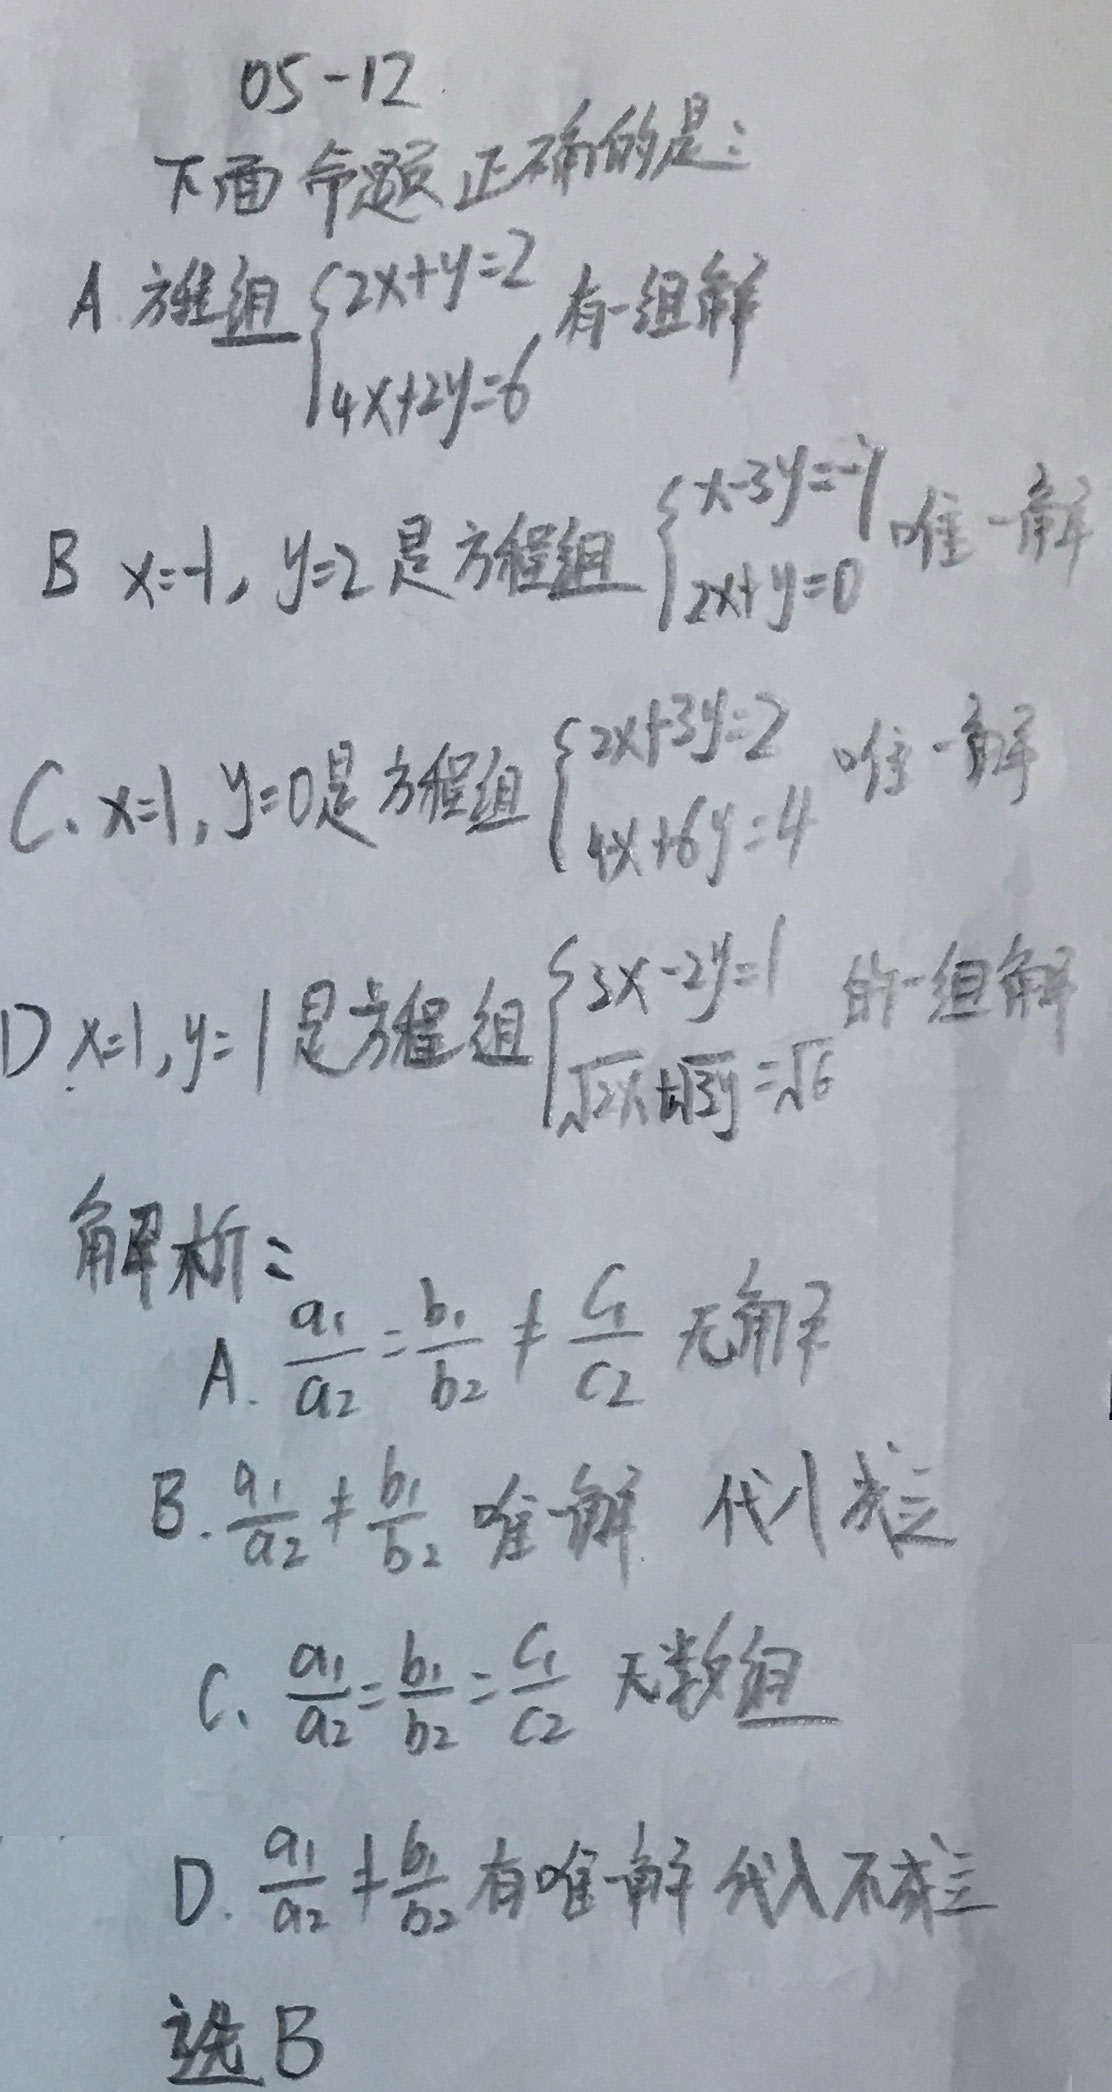 05-12
下面命题正确的是:
A 方程组 {2x+y=2 有一组解
4x+2y=6
B x=-1, y=2 是方程组 {x-3y=-7 唯一解
2x+y=0
C、x=1, y=0是方程组 {2x+3y=2 唯一解
4x+6y=4
D x=1, y=1 是方程组 {3x-2y=1 的一组解
√2x+√3y=√6
解析:
A. a₁/a₂ = b₁/b₂ ≠ c₁/c₂ 无解
B. a₁/a₂ ≠ b₁/b₂ 唯一解 代入成立
C、a₁/a₂ = b₁/b₂ = c₁/c₂ 无数组
D. a₁/a₂ ≠ b₁/b₂ 有唯一解 代入不成立
选B